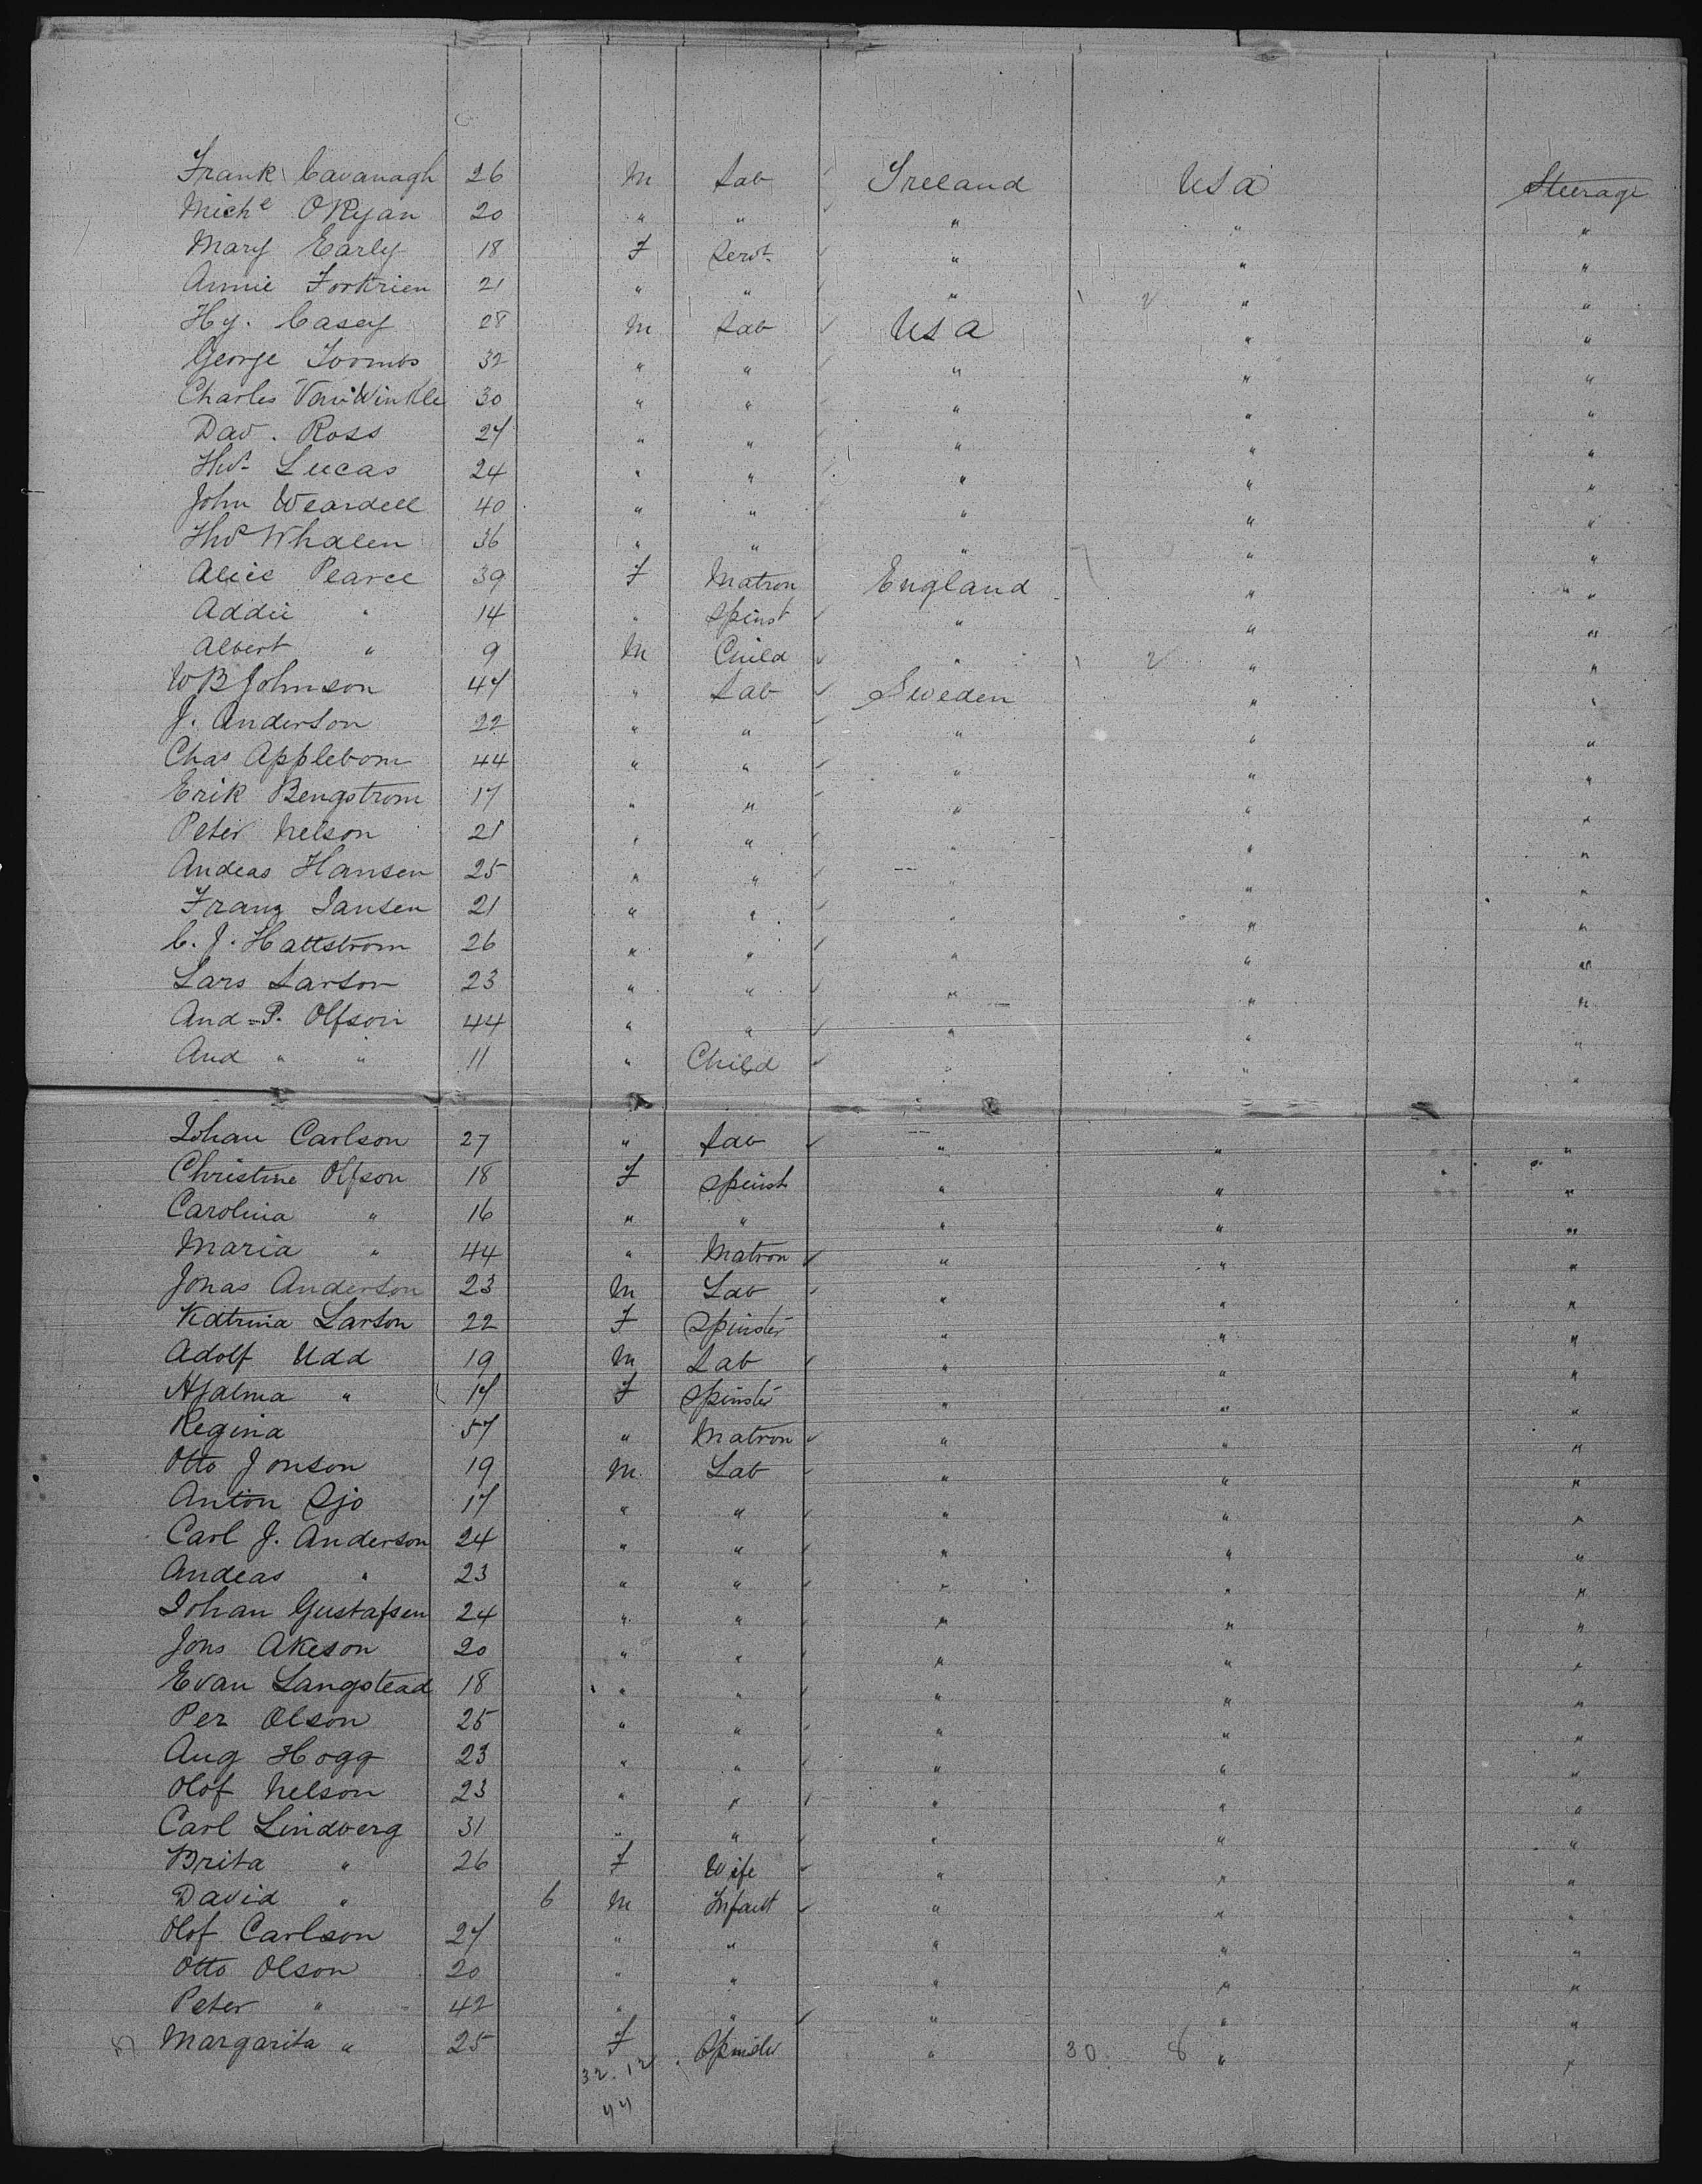 Frank Cavanagh 26 M Lab Ireland USA Steerage
Mich e O Ryan 20 " " " " "
Mary Early 18 F Servt " " "
Annie 21 " " " 1 2 " "
Hy. Casey 28 M Lab USA " "
George Toombs 32 " " " " "
Charles Van Winkle 30 " " " " "
Dav. Ross 27 " " " " "
Thos Lucas 24 " " " " "
John Weardell 40 " " " " "
Thos Whalen 36 " " " 7 " "
Alice Pearce 39 F Matron England " "
Addie " 14 " Spinst " " "
Albert " 9 M Child " 1 2 " "
W B Johnson 47 " Lab Sweden " "
J. Anderson 22 " " " " "
Chas Applebom 44 " " " " "
Erik Bengstrom 17 " " " " "
Peter Nelson 21 " " " " "
Andeas Hansen 25 " " " " "
Franz Jansen 21 " " " " "
C. J. Hattstrom 26 " " " " "
Lars Larson 23 " " " " "
And P. Olfson 44 " " " " "
And " " 11 " Child " " "
Johan Carlson 27 " Lab " " "
Christine Olfson 18 F Spinst " " "
Carolina " 16 " " " " "
Maria " 44 " Matron " " "
Jonas Anderson 23 M Lab " " "
Katrina Larson 22 F Spinster " " "
Adolf Udd 19 M Lab " " "
Hjalma " 17 F Spinster " " "
Regina 57 " Matron " " "
Otto Jonson 19 M Lab " " "
Anton Sjo 17 " " " " "
Carl J. Anderson 24 " " " " "
Andeas " 23 " " " " "
Johan Gustafsen 24 " " " " "
Jons Akeson 20 " " " " "
Evan Langstead 18 " " " " "
Per Olson 25 " " " " "
Aug Hogg 23 " " " " "
Olof Nelson 23 " " " " "
Carl Lindberg 31 " " " " "
Brita " 26 F Wife " " "
David " 6 M Infant " " "
Olof Carlson 27 " " " " "
Otto Olson 20 " " " " "
Peter " 42 " " " " "
Margarita " 25 F Spinster " 30 8 " "
32. 12
44